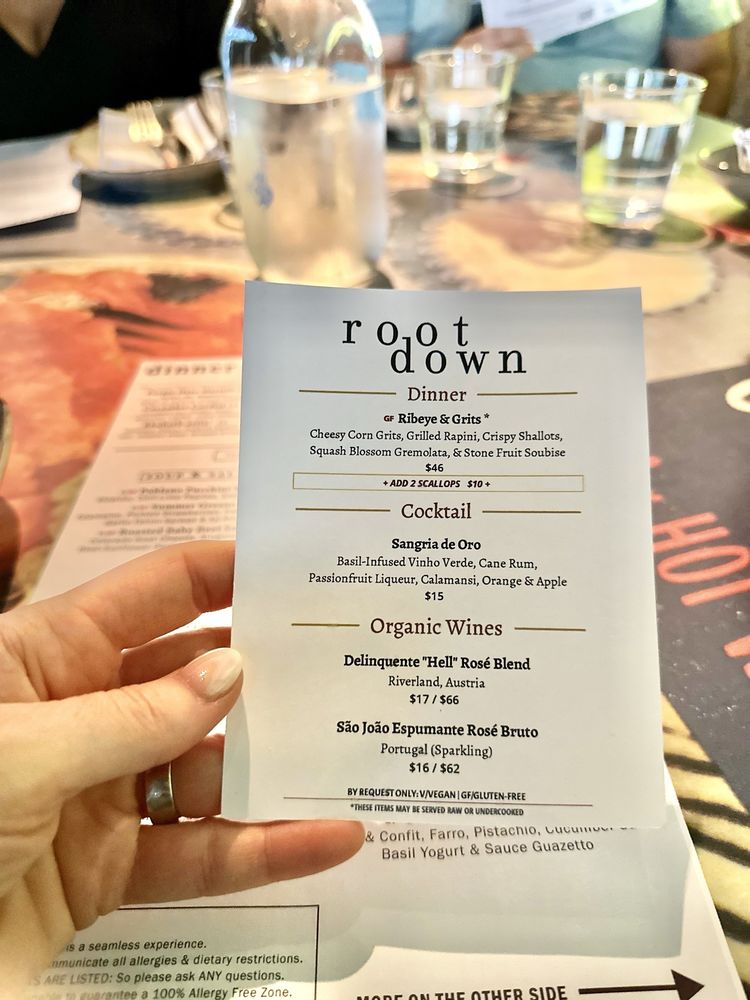 root
down
Dinner
GF Ribeye & Grits *
Cheesy Corn Grits, Grilled Rapini, Crispy Shallots,
Squash Blossom Gremolata, & Stone Fruit Soubise
$46
+ ADD 2 SCALLOPS $10 +
Cocktail
Sangria de Oro
Basil-Infused Vinho Verde, Cane Rum,
Passionfruit Liqueur, Calamansi, Orange & Apple
$15
Organic Wines
Delinquente "Hell" Rosé Blend
Riverland, Austria
$17 / $66
São João Espumante Rosé Bruto
Portugal (Sparkling)
$16 / $62
BY REQUEST ONLY: V/VEGAN | GF/GLUTEN-FREE
*THESE ITEMS MAY BE SERVED RAW OR UNDERCOOKED
dinner
HOT
& Confit, Farro, Pistachio,
Basil Yogurt & Sauce Guazetto
is a seamless experience.
all allergies & dietary restrictions.
ARE LISTED: So please ask ANY questions.
to guarantee a 100% Allergy Free Zone.
MORE ON THE OTHER SIDE